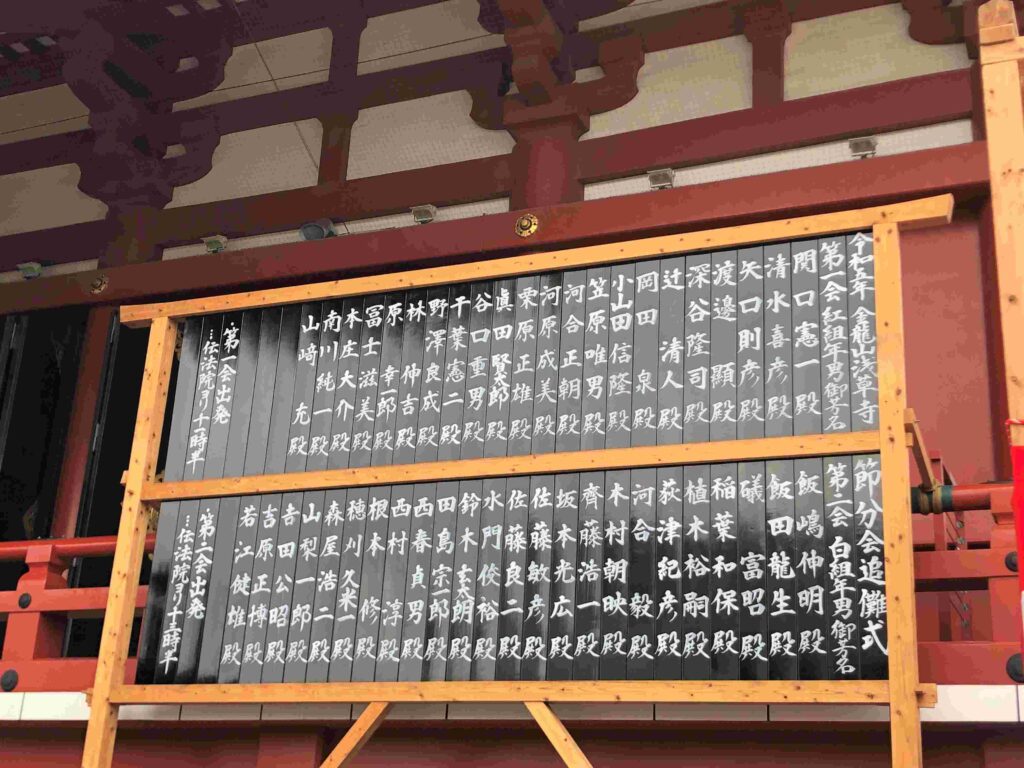 令和五年 金龍山浅草寺
第一会紅組年男御芳名
関口憲一殿
清水喜彦殿
矢口則彦殿
渡邉顯殿
深谷隆司殿
辻清人殿
岡田泉殿
小山田信隆殿
笠原唯男殿
河合正朝殿
河原成美殿
栗原正雄殿
眞田賢太郎殿
谷口重男殿
千葉憲二殿
野澤良成殿
林伸吉殿
原幸一郎殿
冨士滋美殿
本庄大介殿
南川純一殿
山﨑充殿
第一会出発
伝法院ヨリ十一時半
節分会追儺式
第二会白組年男御芳名
飯嶋伸明殿
飯田龍生殿
礒富昭殿
稲葉和保殿
植木裕嗣殿
荻津紀彦殿
河合毅殿
木村朝映殿
齊藤浩一殿
坂本光広殿
佐藤敏彦殿
佐藤良二殿
水門俊裕殿
鈴木玄太朗殿
田島宗一郎殿
西春貞男殿
西村淳殿
根本修殿
穂川久米一殿
森屋浩二殿
山梨一郎殿
吉田公昭殿
吉原正博殿
若江健雄殿
第二会出発
伝法院ヨリ十三時半